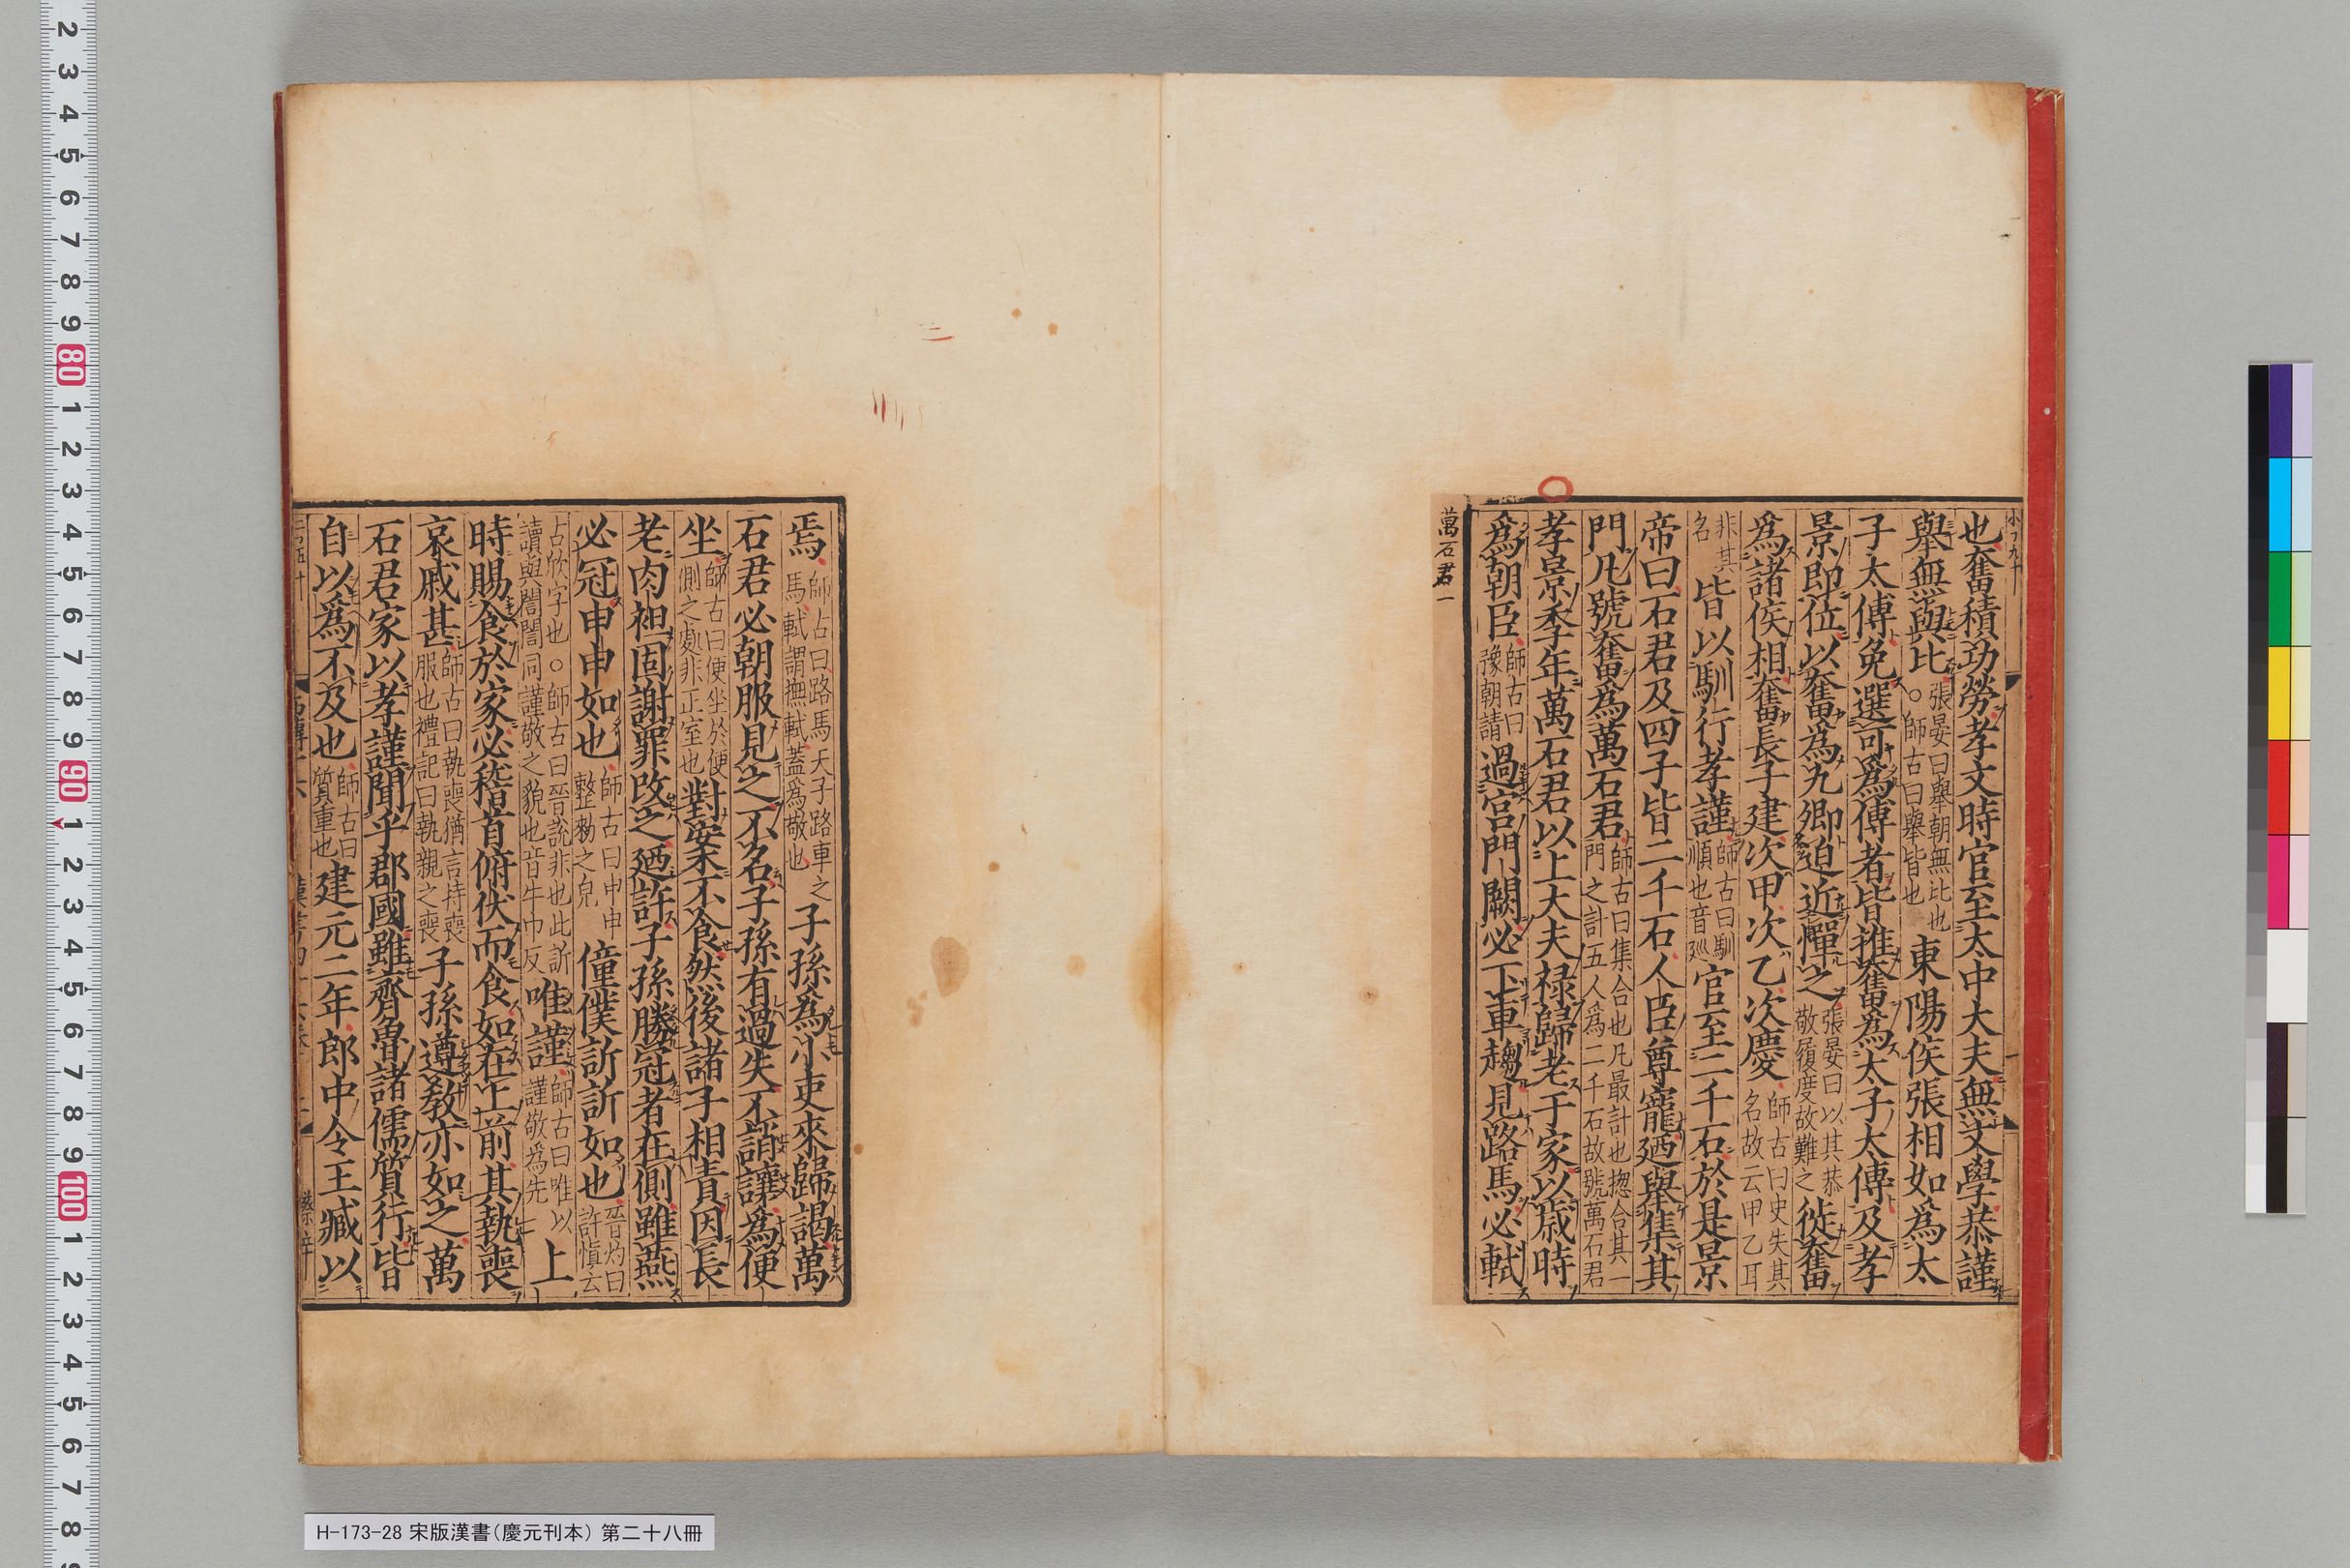 也奮積功勞孝文時官至太中大夫無文學恭謹
舉無與比張晏曰舉朝無比也○師古曰舉皆也東陽侯張相如爲太
子太傅免選可爲傅者皆推奮爲太子太傅及孝
景即位以奮爲九卿迫近憚之張晏曰以其恭敬履度故難之徙奮
爲諸侯相奮長子建次甲次乙次慶師古曰史失其名故云甲乙耳
非其名皆以馴行孝謹師古曰馴順也音巡官至二千石於是景
帝曰石君及四子皆二千石人臣尊寵廼舉集其
門凡號奮爲萬石君師古曰集合也凡最計也揔合其一門之計五人爲二千石故號萬石君
孝景季年萬石君以上大夫禄歸老于家以歲時
爲朝臣師古曰豫朝請過宮門闕必下車趨見路馬必軾
萬石君一
焉師古曰路馬天子路車之馬軾謂撫軾蓋爲敬也子孫爲小吏來歸謁萬
石君必朝服見之不名子孫有過失不誚讓爲便
坐師古曰便坐於便側之處非正室也對案不食然後諸子相責因長
老肉袒固謝罪改之廼許子孫勝冠者在側雖燕
必冠申申如也師古曰申申整勑之皃僮僕訢訢如也晉灼曰許慎云
古欣字也○師古曰晉說非也此訢讀與誾誾同謹敬之貌也音牛巾反唯謹師古曰唯以謹敬爲先上
時賜食於家必稽首俯伏而食如在上前其執喪
哀戚甚師古曰執喪猶言持喪服也禮記曰執親之喪子孫遵教亦如之萬
石君家以孝謹聞乎郡國雖齊魯諸儒質行皆
自以爲不及也師古曰質重也建元二年郎中令王臧以
H-173-28 宋版漢書(慶元刊本) 第二十八冊
2 3 4 5 6 7 8 9 80 1 2 3 4 5 6 7 8 9 90 1 2 3 4 5 6 7 8 9 100 1 2 3 4 5 6 7 8 9